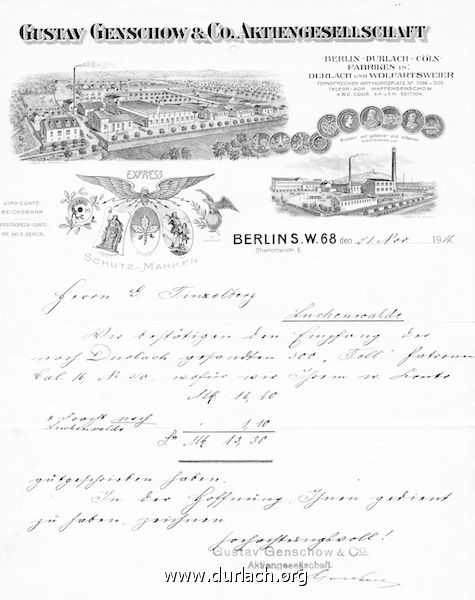 GUSTAV GENSCHOW & CO. AKTIENGESELLSCHAFT
BERLIN - DURLACH - CÖLN
FABRIKEN IN:
DURLACH UND WOLFARTSWEIER
FERNSPRECHER AMT MORITZPLATZ, No
TELEGR.-ADR. WAFFENGENSCHOW
A.B.C. CODE 4th u 5th EDITION.
Prämiirt mit goldener und silberner
STAATSMEDAILLE
EXPRESS
GIRO-CONTO
REICHSBANK
POSTSCHECK-CONTO:
NR. 3613, BERLIN.
SCHUTZ-MARKEN
BERLIN S.W. 68 den 21 Nov 191
Charlottenstr. 6.
Herrn G. Tinzelberg
Luckenwalde
Wir bestätigen den Empfang der
nach Durlach gesandten 300 Patronen
Cal. 16 wofür wir Ihrem w. Konto
Mk
Fracht nach 1,10
Luckenwalde
Mk 13,30
gutgeschrieben haben.
In der Hoffnung, Ihnen gedient
zu haben, zeichnen
hochachtungsvoll!
Gustav Genschow & Co.
Aktiengesellschaft.
www.durlach.org